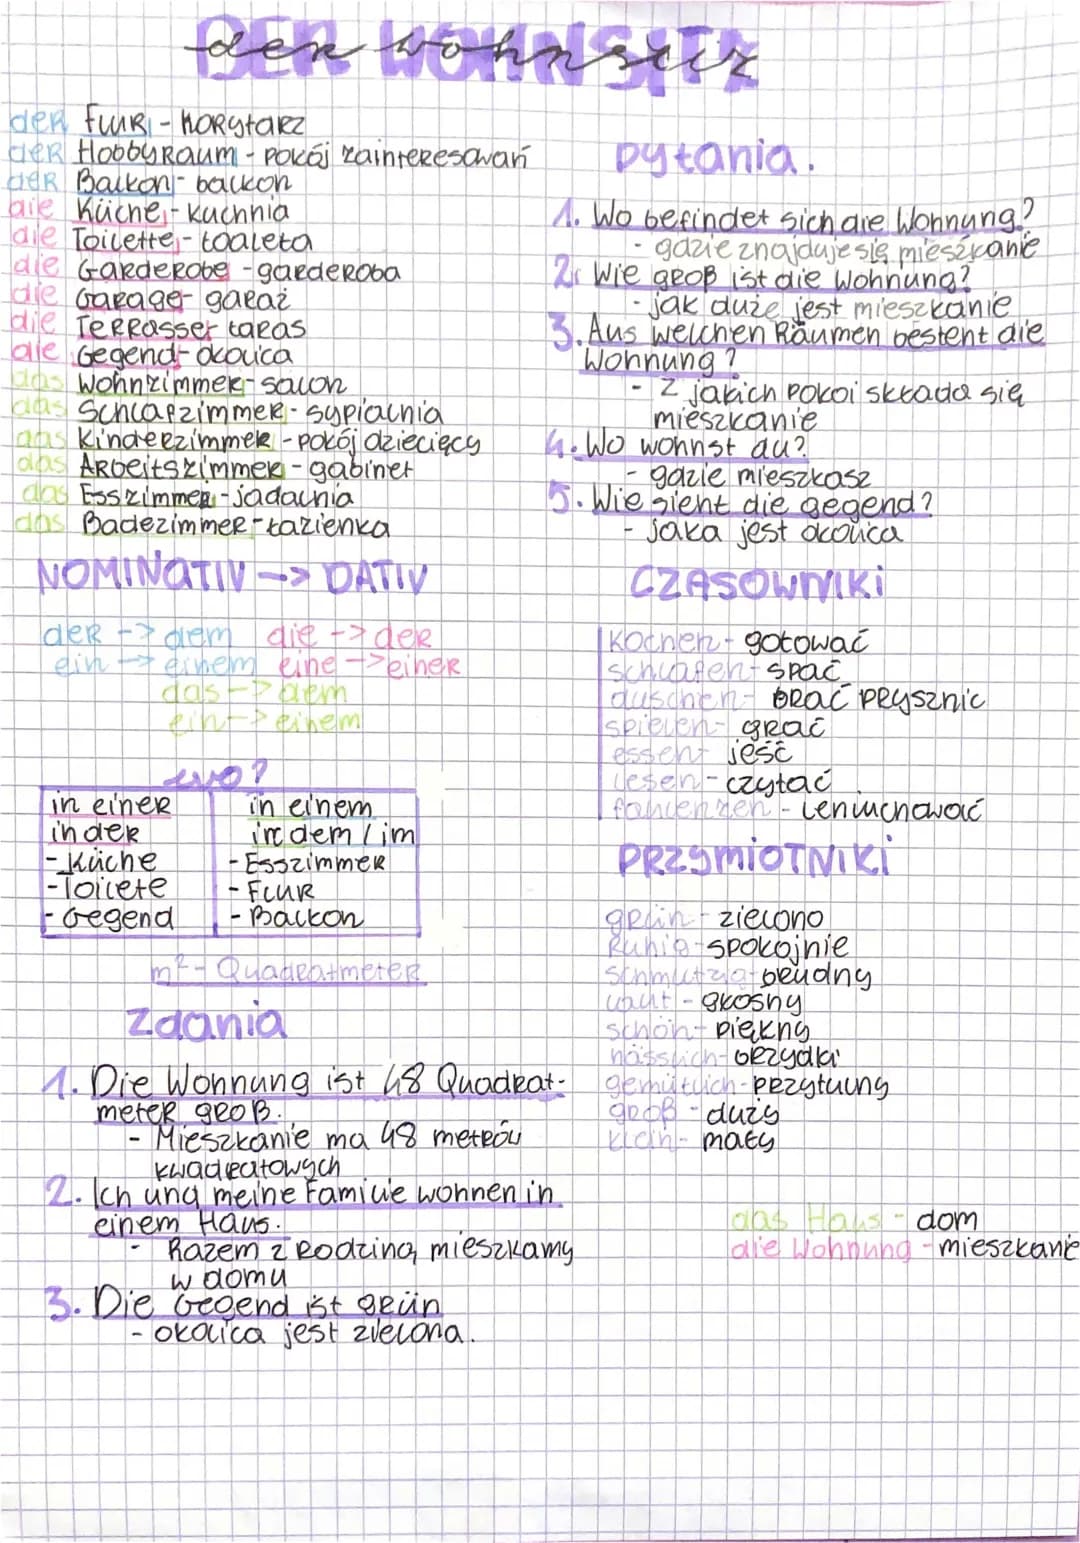 DER WOHNSITZ
der wohnsitz
der Flur - korytarz
der Hobbyraum - pokój zainteresowań
der Balkon - balkon
die Küche - kuchnia
die Toilette - toaleta
die Garderobe - garderoba
die Garage - garaż
die Terrasser taras
die Gegend - okolica
das Wohnzimmer - salon
das Schlafzimmer - sypialnia
das Kinderzimmer - pokój dziecięcy
das Arbeitszimmer - gabinet
das Esszimmer - jadalnia
das Badezimmer - łazienka
NOMINATIV -> DATIV
der -> dem die -> der
ein -> einem eine -> einer
das -> dem
ein -> einem
wo?
in einer
in der
- Küche
- Toilete
- Gegend
in einem
in dem / im
- Esszimmer
- Flur
- Balkon
m² - Quadratmeter
Zdania
1. Die Wohnung ist 48 Quadrat-
meter groß.
- Mieszkanie ma 48 metrów
kwadratowych
2. Ich und meine Familie wohnen in
einem Haus.
- Razem z rodziną mieszkamy
w domu
3. Die Gegend ist grün
- okolica jest zielona.
pytania.
1. Wo befindet sich die Wohnung?
- gdzie znajduje się mieszkanie
2. Wie groß ist die Wohnung?
- jak duże jest mieszkanie
3. Aus welchen Räumen besteht die
Wohnung?
- z jakich pokoi składa się
mieszkanie
4. Wo wohnst du?
- gdzie mieszkasz
5. Wie sieht die gegend?
- jaka jest okolica
CZASOWNIKI
kochen - gotować
schlafen - spać
duschen - brać prysznic
spielen - grać
essen - jeść
lesen - czytać
faulenzen - leniuchować
PRZYMIOTNIKI
grün - zielono
ruhig - spokojnie
schmutzig - brudny
laut - głośny
schön - piękny
hässlich - brzydki
gemütlich - przytulny
groß - duży
klein - mały
das Haus - dom
die Wohnung - mieszkanie